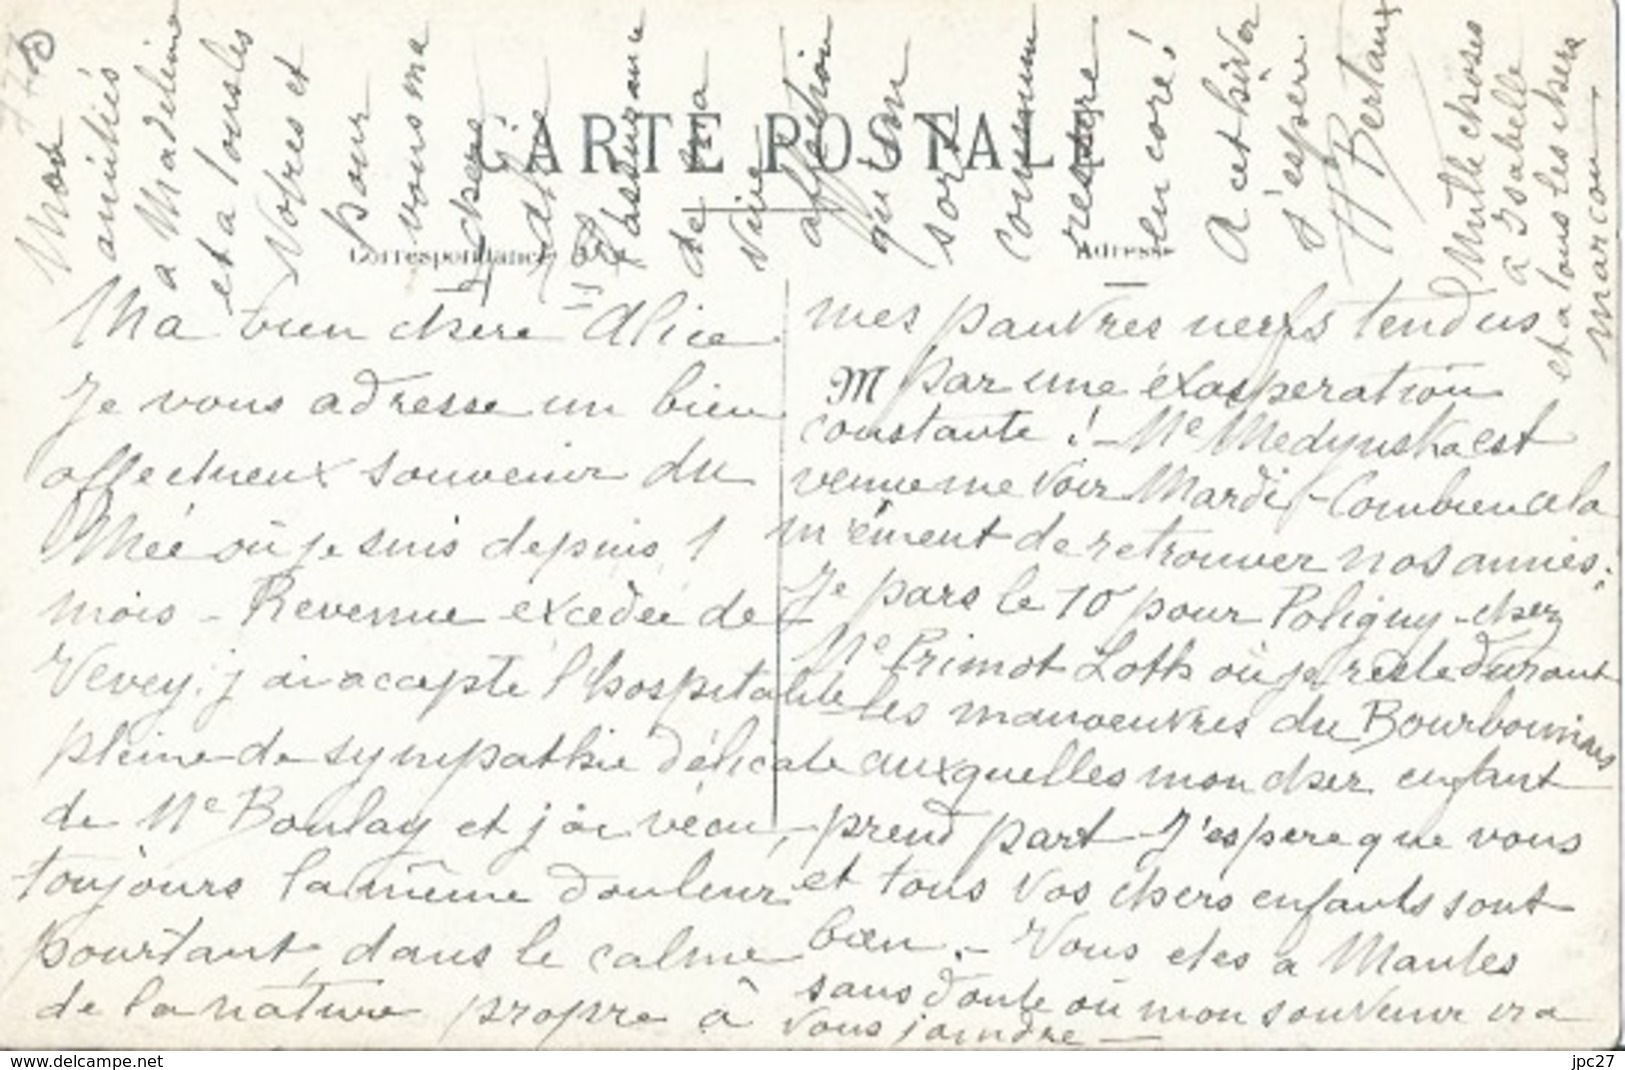 CARTE POSTALE
Correspondance
Adresse
M
Ma bien chère Alice
Je vous adresse un bien
affectueux souvenir du
Mée où je suis depuis 1
mois - Revenue excédée de
Vevey, j'ai accepté l'hospitalité
pleine de sympathie délicate
de Me Boulay et j'ai vécu,
toujours la même douleur
pourtant, dans le calme
de la nature propre à
mes pauvres nerfs tendus
par une exasperation
constante ! - Me Medynska est
venue me voir Mardi - Combien cela
m'ément de retrouver nos amies !
Je pars le 10 pour Poligny chez
Me Primot Loth où je reste durant
les manoeuvres du Bourbonnais
auxquelles mon cher enfant
prend part - J'espere que vous
et tous vos chers enfants sont
bien. - Vous etes a Mantes
sans doute où mon souvenir ira
vous joindre -
Mes
amitiés
a Madeleine
et a tous les
Votres et
pour
vous ma
chere
l'assurance
de ma
vive
affection
qu'un
sort
commun
resserre
encore !
A cet hiver
j'espere
H Bertaux
Mille choses
à Isabelle
et a tous les chers
Marcou
delcampe.net
jpc27